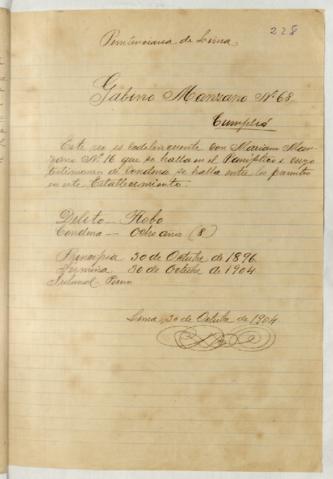 228
Penitenciaria de Lima
Gabino Manzano Nº 68.
Cumplió
Este reo es codelincuente con Mariano Man-
zano Nº 16 que se halla en el Panóptico i cuyo
testimonio de condena se halla entre los
en este Establecimiento.
Delito — Robo
Condena — Ocho años (8)
Principia 30 de Octubre de 1896
Termina 30 de Octubre de 1904
Tribunal
Lima, 30 de Octubre de 1904